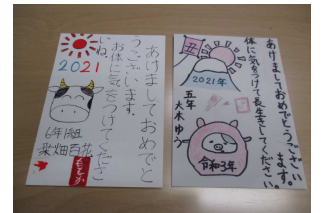 あけましておめでと
うございます。
お体に気をつけてくださ
いね。
2021
6年1組
柴畑百花
ももか
あけましておめでとうございます。
体に気をつけて長生きしてください。
丑
2021年
五年
大木ゆう
令和3年